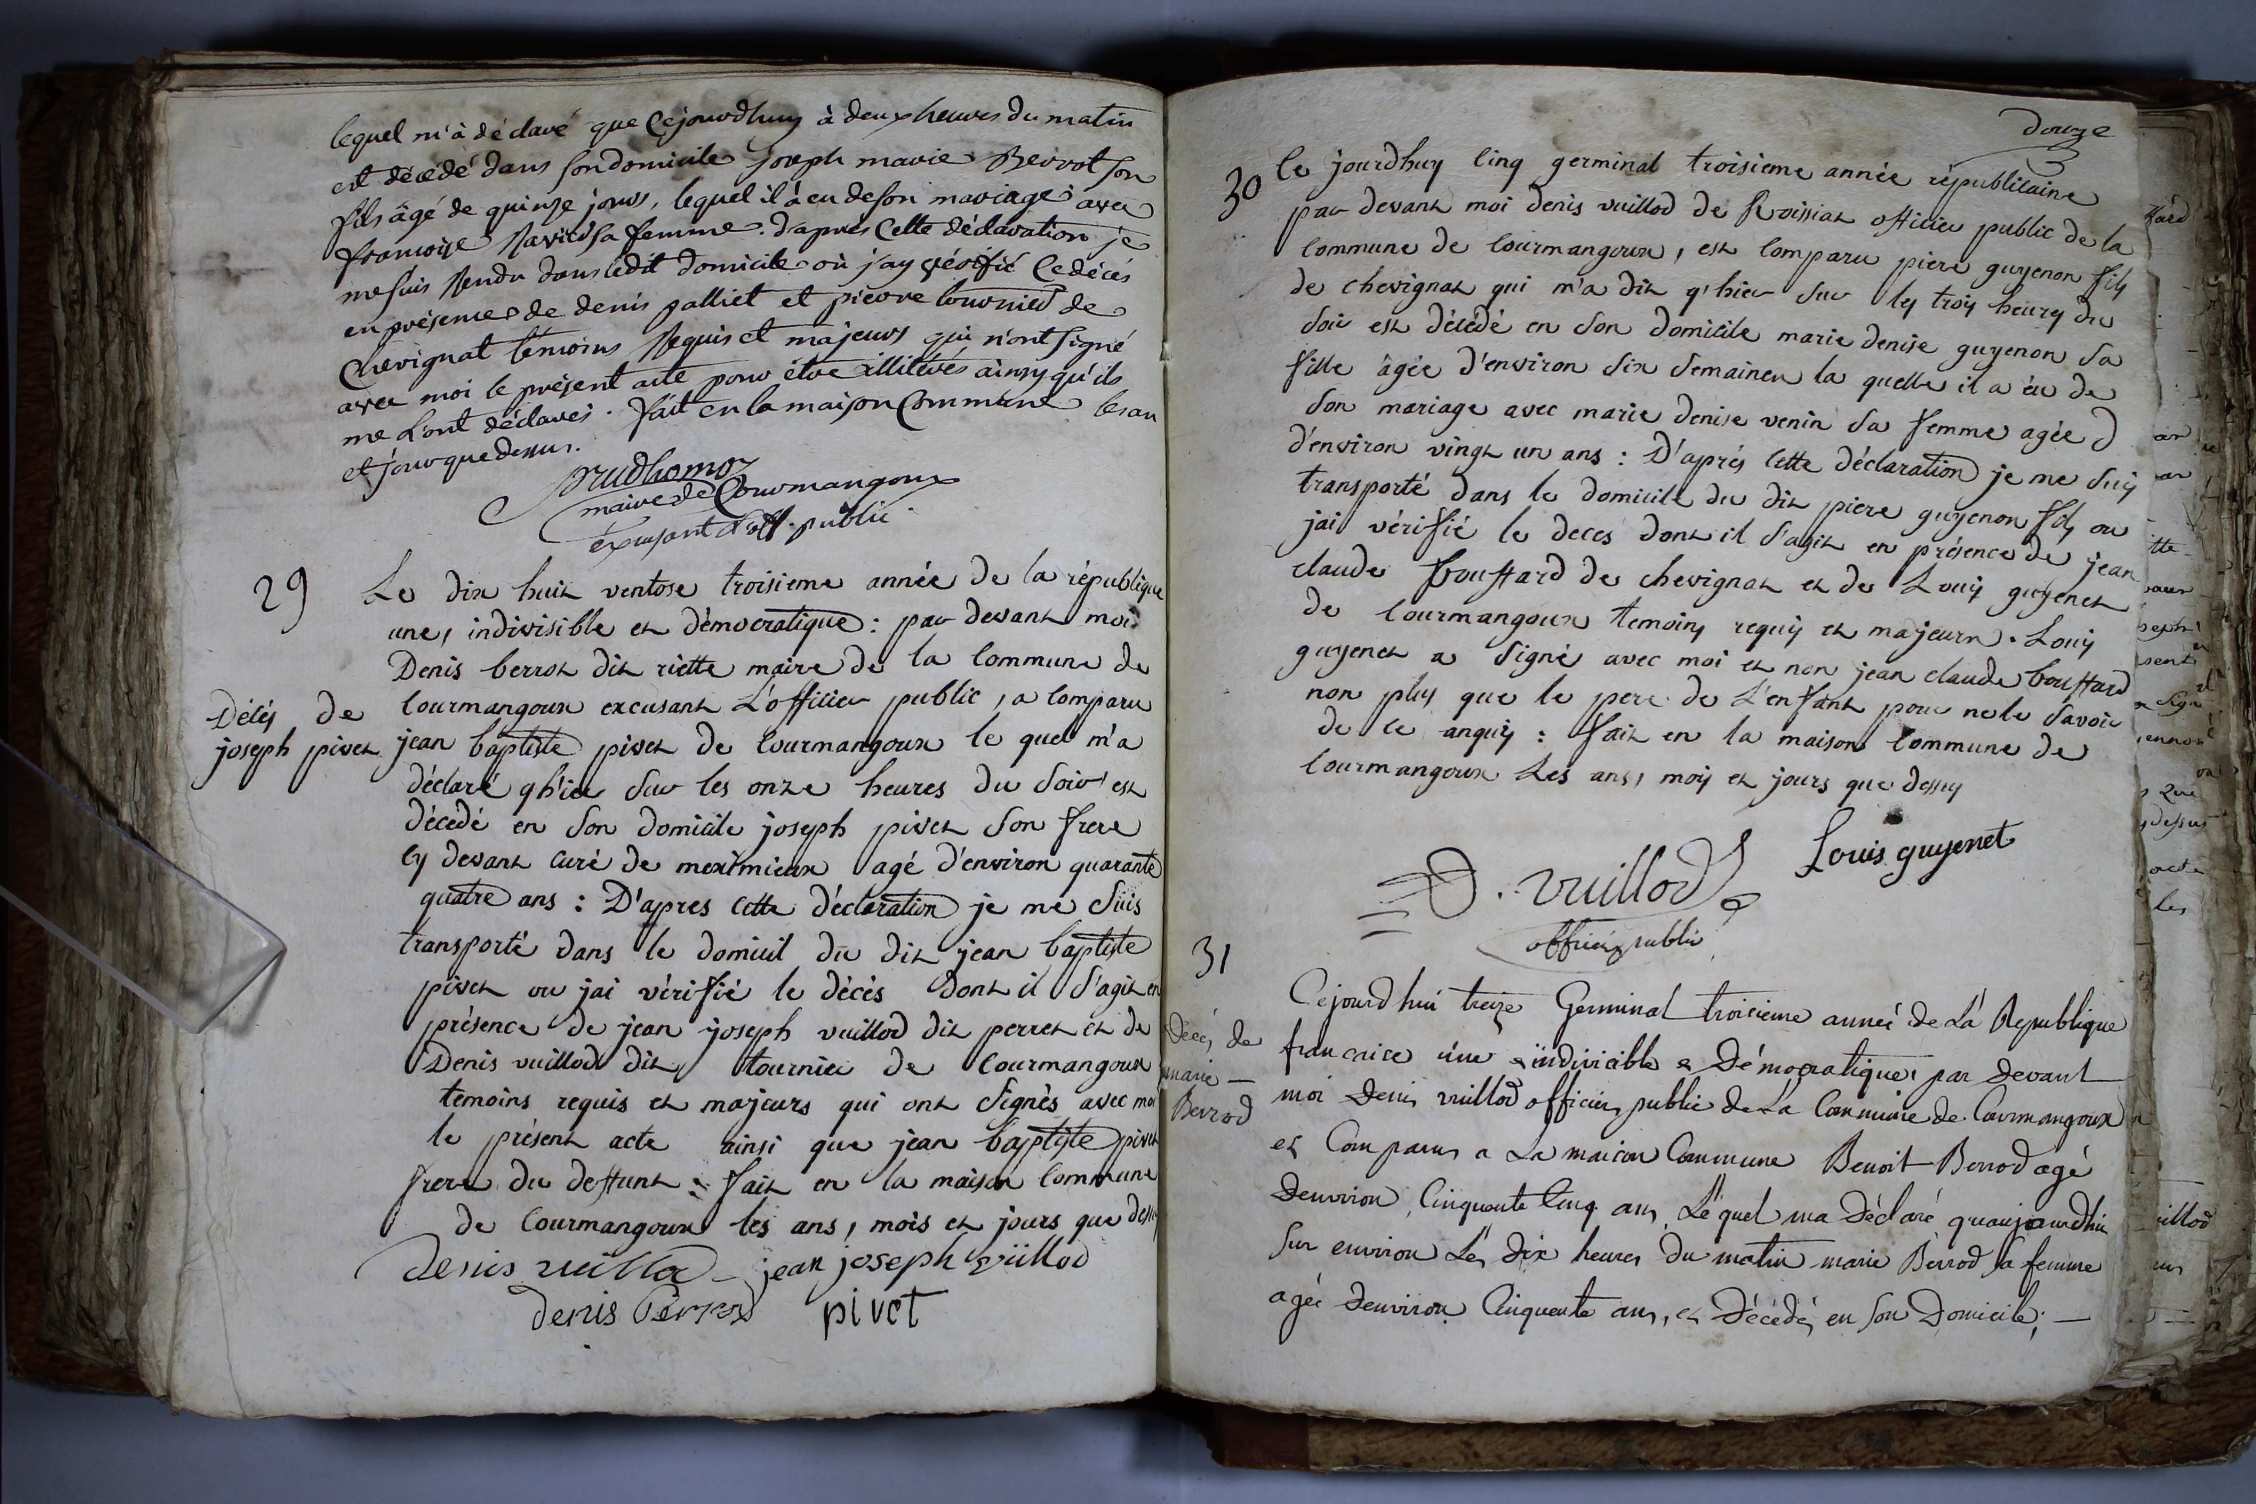 lequel m'à déclaré que Cejourdhuy à deux heures du matin
est décédé dans son domicile joseph marie Berrot son
fils âgé de quinze jours, lequel il à eu de son mariage avec
francoise sa femme. d'après Cette déclaration je
me suis Rendu dans ledit domicile où j'ay vérifié Ce décés
en présence de denis palliet et pierre tournier de
Chevignat témoins Requis et majeurs qui n'ont signé
avec moi le présent acte pour être illitérés ainsy qu'ils
me L'ont déclarés. fait en la maison Commune les an
et jour que dessus.
prudhomoz
maire de Courmangoux
éxcusant L'off. public.
29
Le dix huit ventose troisieme année de la république
une, indivisible et démocratique : par devant moi
Denis berrot dit riette maire de la Commune de
Courmangoux excusant L'officier public, a comparu
Décés de
joseph pivet
jean baptiste pivet de Courmangoux le quel m'a
déclaré q'hier sur les onze heures du soir est
décédé en son domicile joseph pivet son frere
cy devant curé de meximieux agé d'environ quarante
quatre ans : D'apres cette déclaration je me suis
transporté dans le domicil du dit jean baptiste
pivet ou jai vérifié le décès dont il s'agit en
présence de jean joseph vuillod dit perret et de
Denis vuillod dit tournier de Courmangoux
temoins requis et majeurs qui ont signés avec moi
le présent acte ainsi que jean baptiste pivet
frere du deffunt : fait en la maison Commune
de Courmangoux les ans, mois et jours que dessus
denis vuillod jean joseph vüillod
denis Berrod pivet
douze
30
le jourdhuy cinq germinal troisieme année républicaine
par devant moi denis vuillod de Roissiat officier public de la
commune de Courmangoux, est comparu piere guyenon fils
de chevignat qui m'a dit q'hier sur les trois heures du
soir est décédé en son domicile marie denise guyenon sa
fille âgée d'environ six semaines la quelle il a éu de
son mariage avec marie denise venin sa femme agée
d'environ vingt un ans : D'aprés cette déclaration je me suis
transporté dans le domicile du dit piere guyenon fils ou
jai vérifié le deces dont il s'agit en présence de jean
claude bouffard de chevignat et de Louis guyenet
de Courmangoux temoins requis et majeurs. Louis
guyenet a signé avec moi et non jean claude bouffard
non plus que le pere de L'enfant pour ne le savoir
de ce anquis : fait en la maison Commune de
Courmangoux Les ans, mois et jours que dessus
Louis guyenet
D. vuillod
officier public
31
Décés de
marie
Berrod
Cejourdhui treize Germinal troisieme anneé de La Republique
francaice une indivicible & Démocratique, par devant
moi denis vuillod officier public de La Commune de Courmangoux
est Comparus a La maison Commune Benoit Berrod agé
denviron Cinquente Cinq ans, Le quel ma Déclaré quaujourdhui
sur environ Les dix heures du matin marie Berrod sa femme
ageé denviron Cinquente ans, est Décédés en son Domicile;